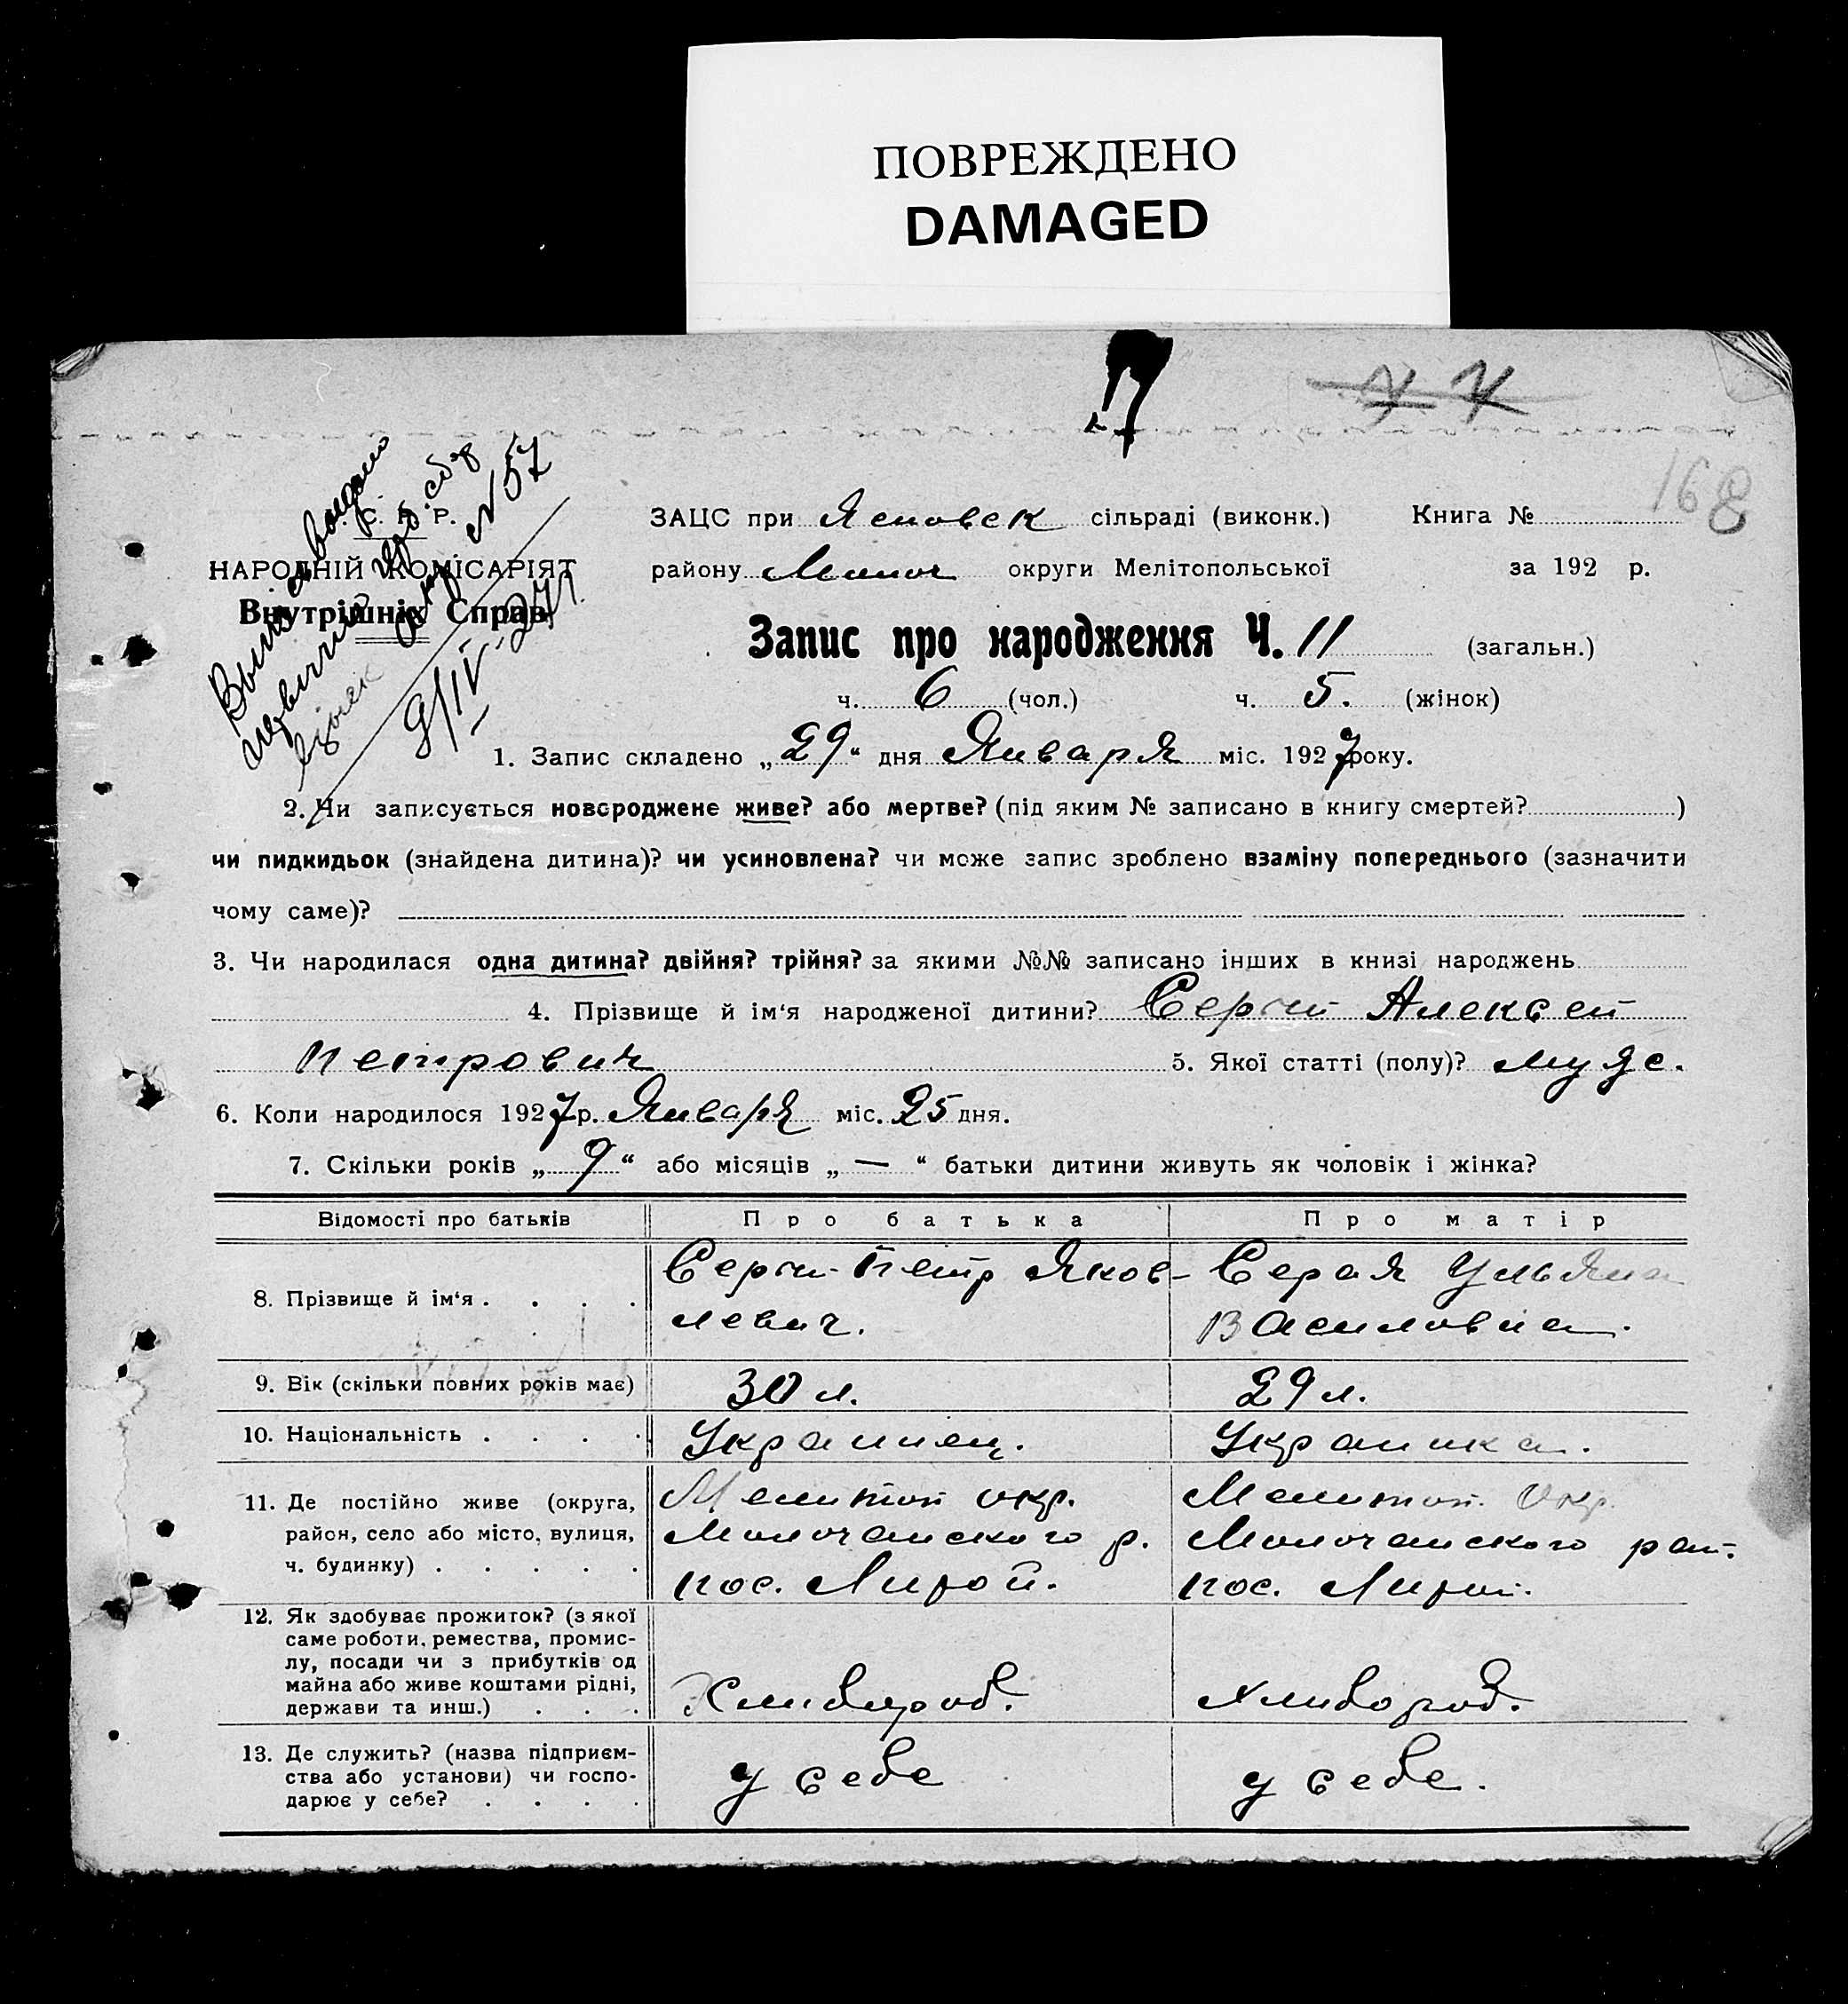 ПОВРЕЖДЕНО
DAMAGED
168
С. Р. Р.
№ 57
НАРОДНІЙ КОМІСАРІЯТ
Внутрішніх Справ
9/IV-27 г.
ЗАЦС при Ясиовск сільраді (виконк.) Книга №
району Молоч округи Мелітопольської за 192 р.
Запис про народження Ч. 11 (загальн.)
ч. 6 (чол.) ч. 5. (жінок)
1. Запис складено „29“ дня Января міс. 1927 року.
2. Чи записується новороджене живе? або мертве? (під яким № записано в книгу смертей? )
чи пидкидьок (знайдена дитина)? чи усиновлена? чи може запис зроблено взаміну попереднього (зазначити
чому саме)?
3. Чи народилася одна дитина? двійня? трійня? за якими №№ записано інших в книзі народжень
4. Прізвище й ім‘я народженої дитини? Серый Алексей
Петрович 5. Якої статті (полу)? мужс.
6. Коли народилося 1927 р. Января міс. 25 дня.
7. Скільки років „9“ або місяців „—“ батьки дитини живуть як чоловік і жінка?
Відомості про батьків Про батька Про матір
8. Прізвище й ім‘я . . . . Серый Петр Яков- Серая Ульяна
левич. Василовна.
9. Вік (скільки повних років має) 30 л. 29 л.
10. Національність . . . . Украинец. Украинка.
11. Де постійно живе (округа, Мелитоп окр. Мелитоп. Окр.
район, село або місто, вулиця, Молочанского р. Молочанского рай.
ч. будинку) . . . . . пос. Лирой. пос. Лирой.
12. Як здобуває прожиток? (з якої
саме роботи, ремества, промис-
лу, посади чи з прибутків од
майна або живе коштами рідні,
держави та инш.) . . . Хлибороб. Хлибороб.
13. Де служить? (назва підприєм-
ства або установи) чи госпо-
дарює у себе? . . . . у себе у себе.